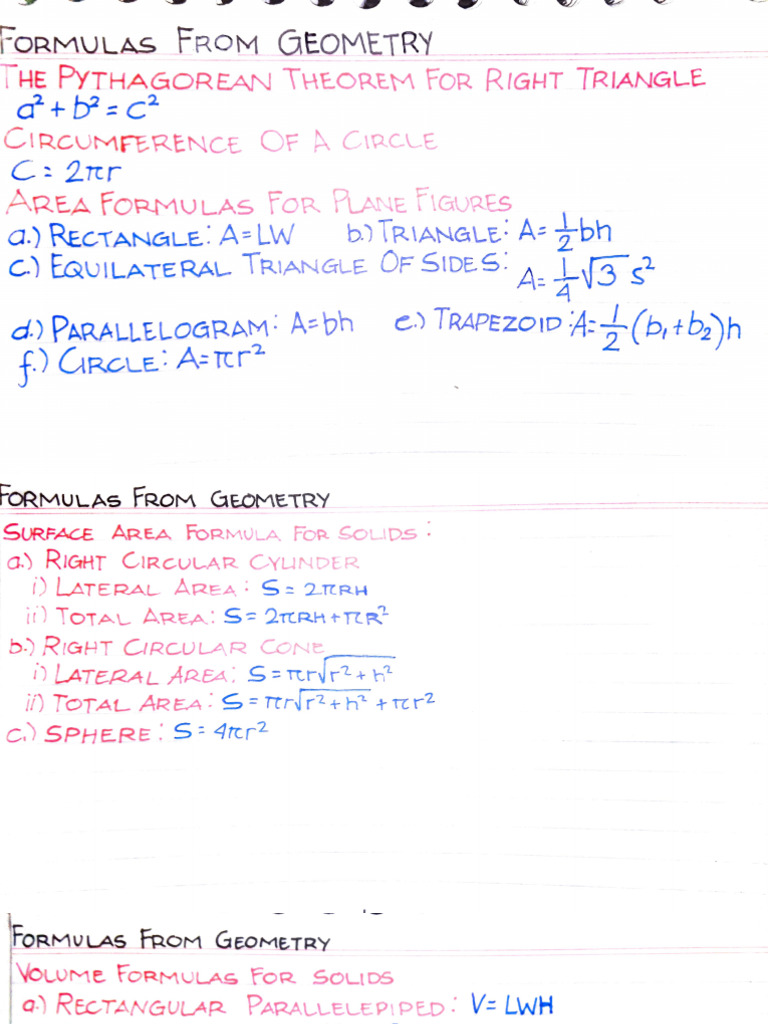 FORMULAS FROM GEOMETRY
THE PYTHAGOREAN THEOREM FOR RIGHT TRIANGLE
a² + b² = c²
CIRCUMFERENCE OF A CIRCLE
C = 2πr
AREA FORMULAS FOR PLANE FIGURES
a.) RECTANGLE: A=LW b.) TRIANGLE: A= 1/2 bh
c.) EQUILATERAL TRIANGLE OF SIDE S: A= 1/4 √3 s²
d.) PARALLELOGRAM: A=bh e.) TRAPEZOID: A= 1/2 (b₁+b₂)h
f.) CIRCLE: A=πr²
FORMULAS FROM GEOMETRY
SURFACE AREA FORMULA FOR SOLIDS:
a.) RIGHT CIRCULAR CYLINDER
i) LATERAL AREA: S= 2πRH
ii) TOTAL AREA: S= 2πRH + πR²
b.) RIGHT CIRCULAR CONE
i) LATERAL AREA: S = πr√(r² + h²)
ii) TOTAL AREA: S = πr√(r² + h²) + πr²
c.) SPHERE: S = 4πr²
FORMULAS FROM GEOMETRY
VOLUME FORMULAS FOR SOLIDS
a.) RECTANGULAR PARALLELEPIPED: V= LWH